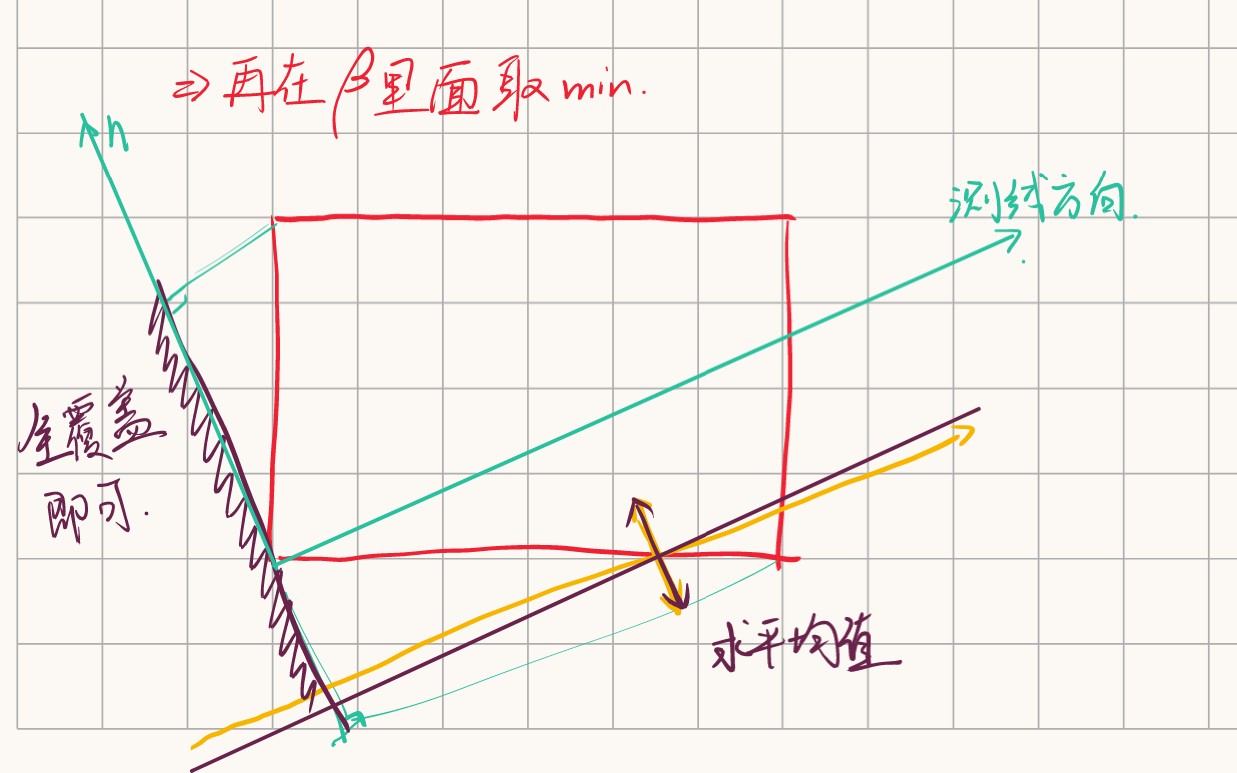 ⇒再在β里面取min.
n
测线方向.
全覆盖
即可.
求平均值